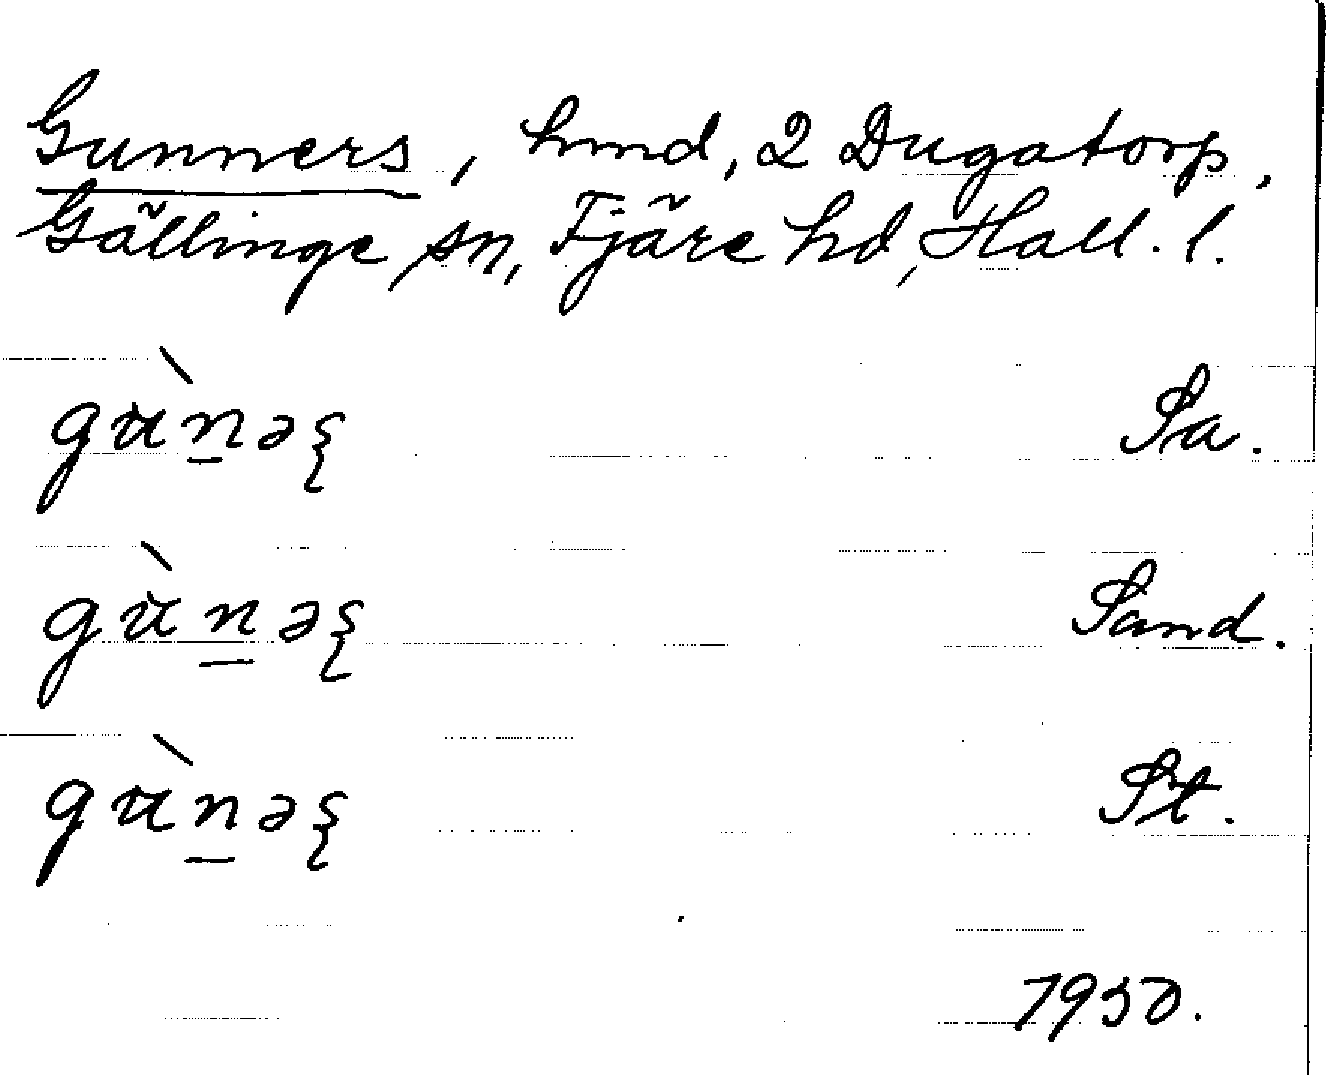 Gunners, hmd, 2 Dugatorp,
Gällinge sn, Fjäre hd, Hall. l.
gùn̲əʂ Sa.
gùn̲əʂ Sand.
gùn̲əʂ St.
1950.